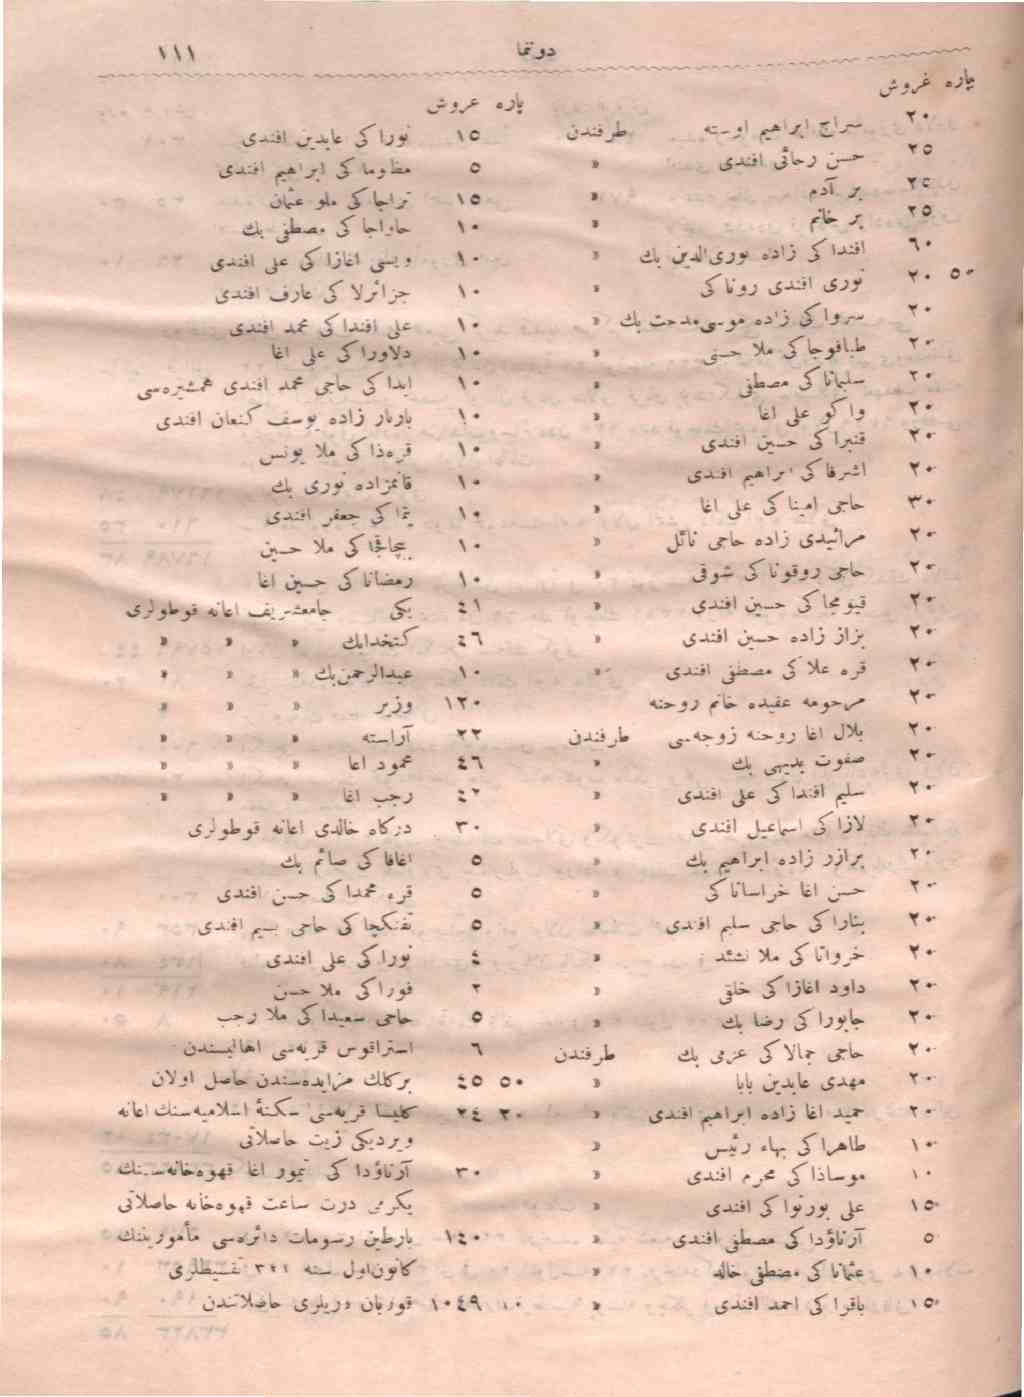 دوتما ١١١
پاره غروش
٢٠ سراج ابراهيم اوسته طرفندن
٢٥ حسن رجائى افندى »
٢٥ بر آدم »
٢٥ بر خانم »
٦٠ افندا كى زاده نورى‌الدين بك »
٥٠ ٢٠ نورى افندى رونا كى »
٢٠ سروا كى زاده موسى مدحت بك »
٢٠ طبافوجا كى ملا حسنى »
٢٠ سليمانا كى مصطفى »
٢٠ واكو على اغا »
٢٠ قنبرا كى حسين افندى »
٢٠ اشرفا كى ابراهيم افندى »
٣٠ حاجى امينا كى على اغا »
٢٠ مرائيدى زاده حاجى نائل »
٢٠ حاجى روقونا كى شوقى »
٢٠ قيومجا كى حسين افندى »
٢٠ بزاز زاده حسين افندى »
٢٠ قره علا كى مصطفى افندى »
٢٠ مرحومه عقيده خانم روحنه
٢٠ بلال اغا روحنه زوجه‌سى طرفندن
٢٠ صفوت بديهى بك »
٢٠ سليم افندا كى على افندى »
٢٠ لازا كى اسماعيل افندى »
٢٠ برازر زاده ابراهيم بك »
٢٠ حسن اغا خراسانا كى »
٢٠ بنارا كى حاجى سليم افندى »
٢٠ خروانا كى ملا نشئد »
٢٠ داود اغازا كى خلقى »
٢٠ جابورا كى رضا بك »
٢٠ حاجى جمالا كى عزمى بك طرفندن
٢٠ مهدى عابدين بابا »
٢٠ حميد اغا زاده ابراهيم افندى »
١٠ طاهرا كى بهاء رئيس »
١٠ موساذا كى محرم افندى »
١٥ على بورنوا كى افندى »
٥ آرناؤدا كى مصطفى افندى »
١٠ عثمانا كى مصطفى خالد »
١٥ باقرا كى احمد افندى »
پاره غروش
١٥ نورا كى عابدين افندى
٥ مظلوما كى ابراهيم افندى
١٥ تراجا كى ملو عثمان
١٠ حاواجا كى مصطفى بك
١٠ ويسى اغازا كى على افندى
١٠ جزائرلا كى عارف افندى
١٠ على افندا كى محمد افندى
١٠ دلاورا كى على اغا
١٠ ايدا كى حاجى محمد افندى همشيره‌سى
١٠ بارنار زاده يوسف كنعان افندى
١٠ قره‌ذا كى ملا يونس
١٠ قانمزاده نورى بك
١٠ يتما كى جعفر افندى
١٠ بچاقجا كى ملا حسين
١٠ رمضانا كى حسين اغا
٤١ يكى جامعشريف اعانه قوطولرى
٤٦ كتخدابك » » »
١٠ عبدالرحمن‌بك » » »
١٢٠ وزير » » »
٢٢ آراسته » » »
٤٦ محمود اغا » » »
٤٢ رجب اغا » » »
٣٠ دركاه خالدى اعانه قوطولرى
٥ اغافا كى صائم بك
٥ قره محمدا كى حسن افندى
٥ تفنكچا كى حاجى بسيم افندى
٤ نورا كى على افندى
٢ فورا كى ملا حسن
٥ حاجى سعيدا كى ملا رجب
٦ استراقوس قريه‌سى اهاليسندن
٥٠ ٤٥ بركلك مزايده‌سندن حاصل اولان
٢٠ ٢٤ كليسا قريه‌سى سكنهٔ اسلاميه‌سنك اعانه
ويرديكى زيت حاصلاتى
٣٠ آرناؤدا كى تيمور اغا قهوه‌خانه‌سينك
يكرمى درت ساعت قهوه‌خانه حاصلاتى
١٤٠ بارطين رسومات دائره‌سى مأمورينك
كانون‌اول سنه تقسيطلرى
١٠ ١٠٤٩ قوربان دريلرى حاصلاتندن